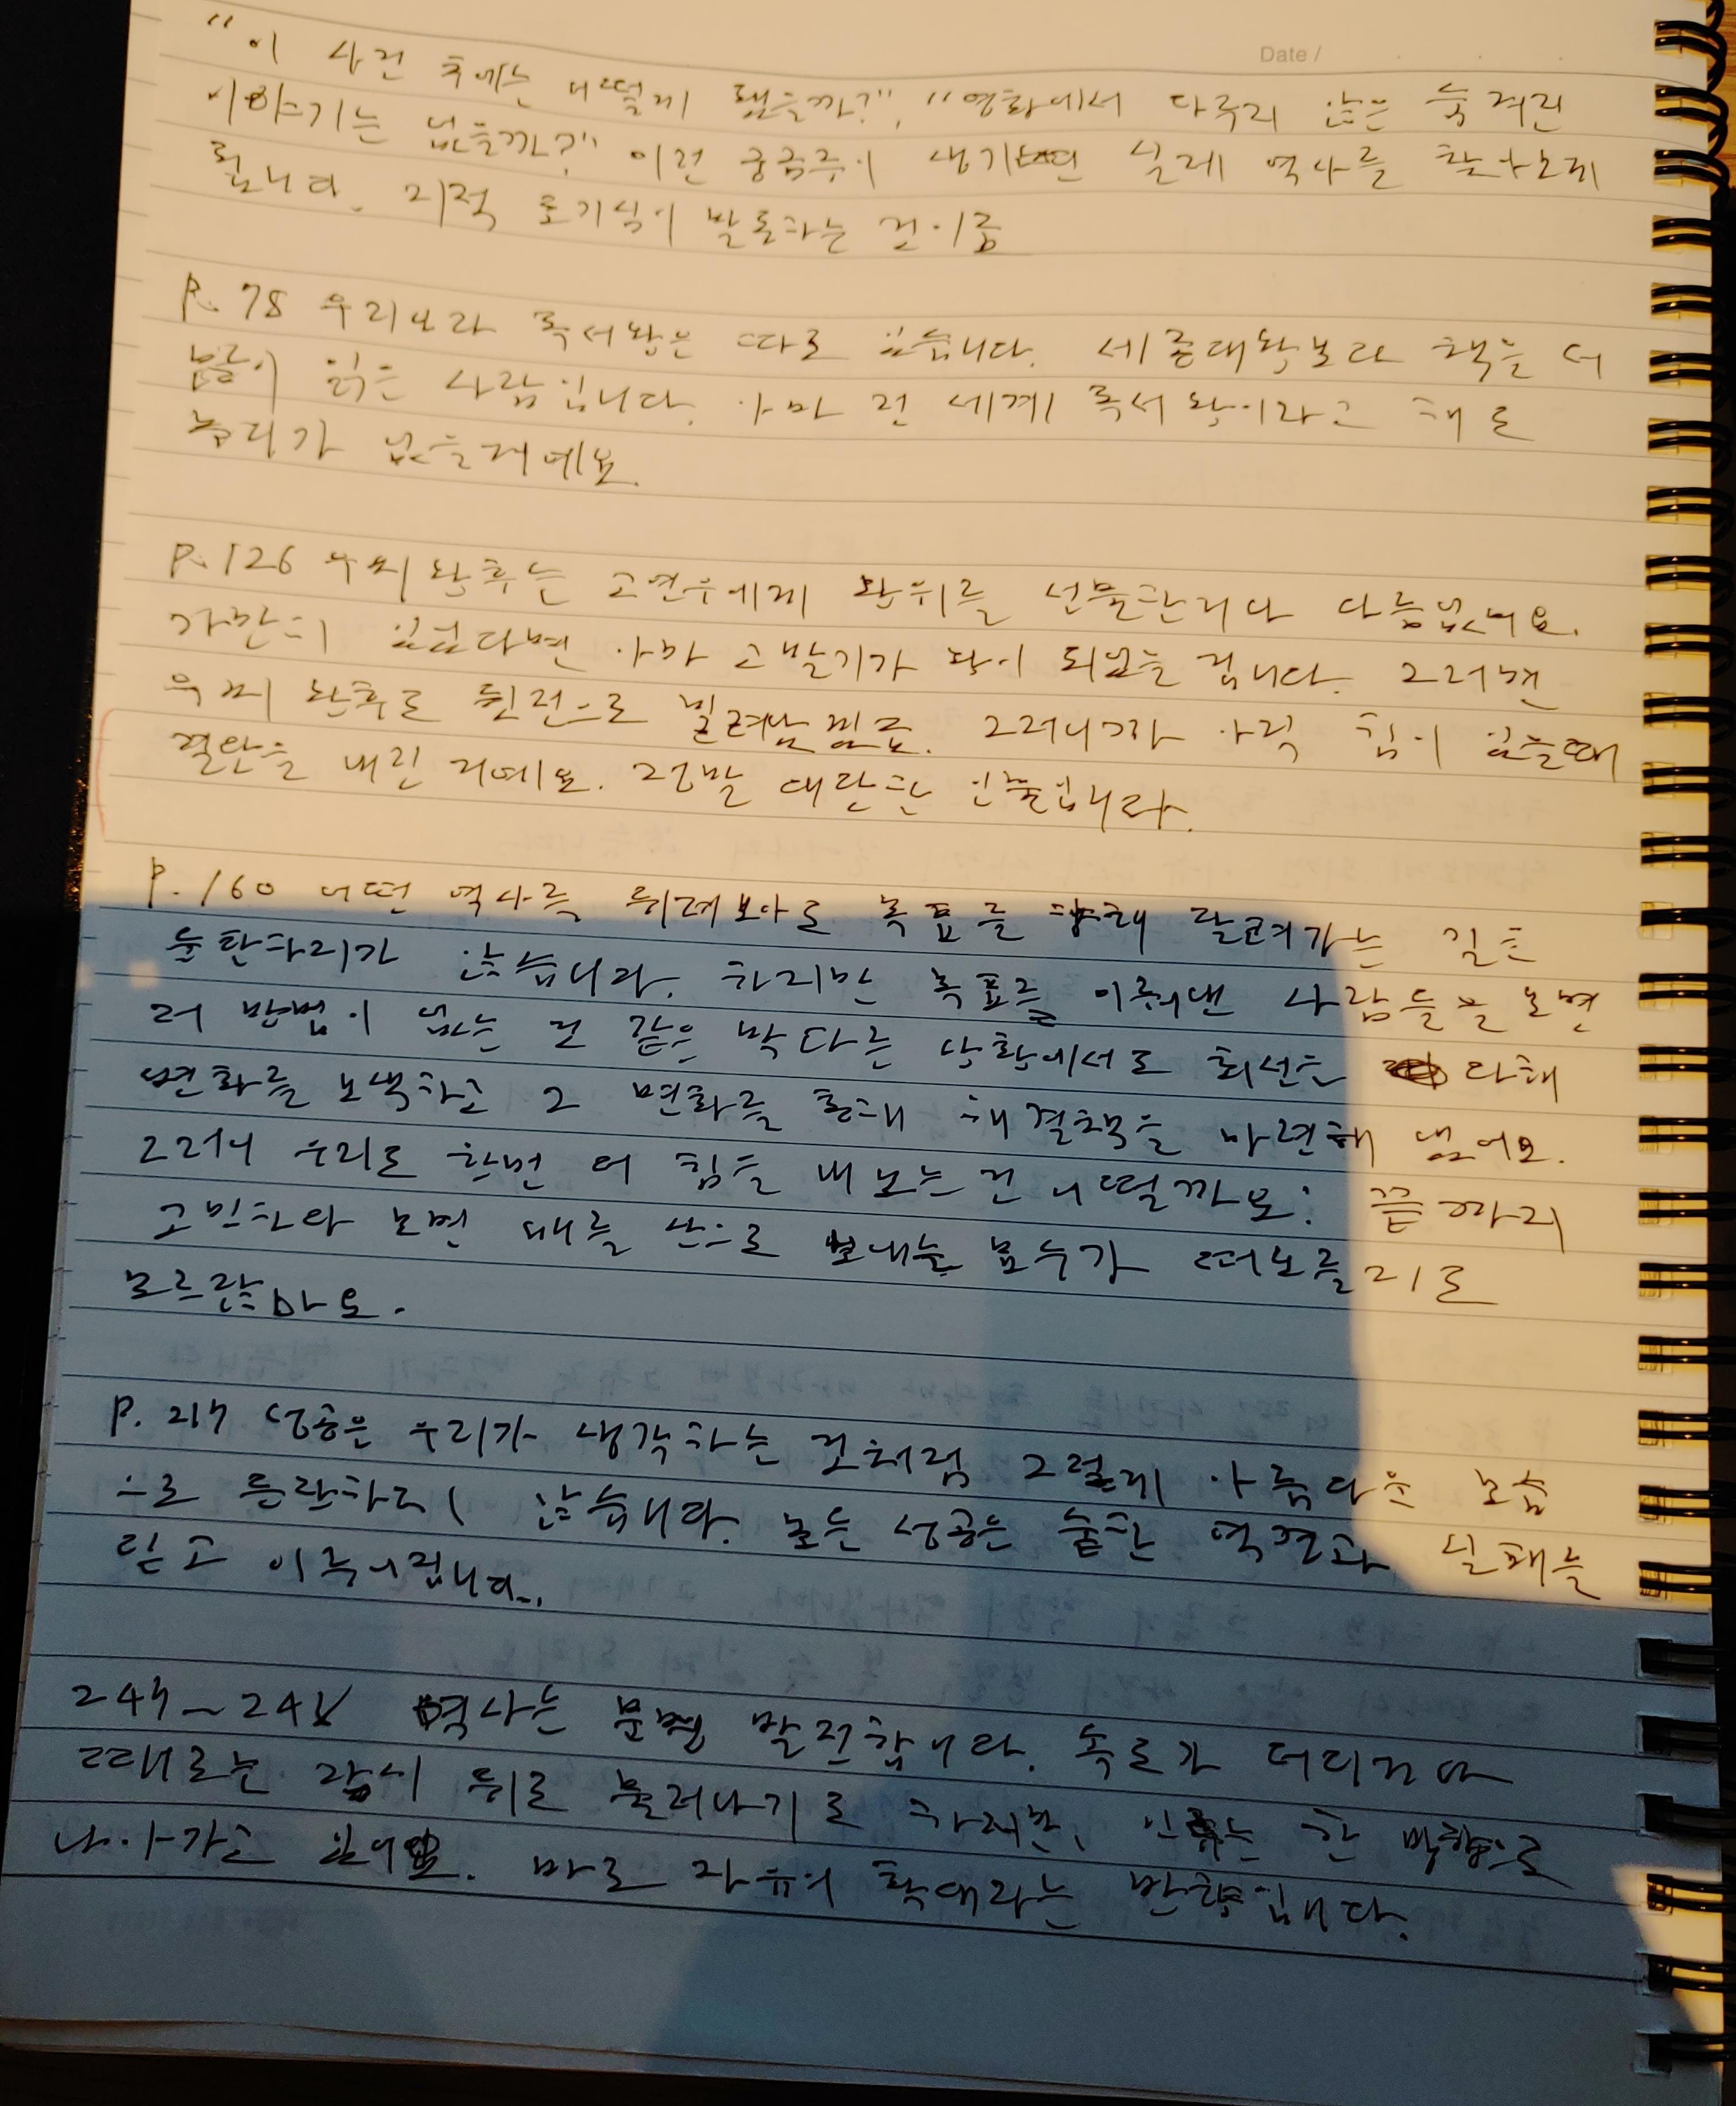 Date /
"이 사건 후에는 어떻게 됐을까?", "영화에서 다루지 않은 숨겨진
이야기는 없을까?" 이런 궁금증이 생기면 실제 역사를 찾아보게
됩니다. 지적 호기심이 발동하는 것이죠
P. 78 우리나라 독서왕은 따로 있습니다. 세종대왕보다 책을 더
많이 읽은 사람입니다. 아마 전 세계 독서왕이라고 해도
무리가 없을거예요.
P. 126 우씨 왕후는 고연우에게 왕위를 선물한거나 다름없어요.
가만히 있었다면 아마 고발기가 왕이 되었을 겁니다. 그러면
우씨 왕후도 뒷전으로 밀려났겠죠. 그러니까 아직 힘이 있을때
결단을 내린 거예요. 정말 대단한 인물입니다.
P. 160 어떤 역사를 뒤져봐도 목표를 향해 달려가는 길은
순탄하지가 않습니다. 하지만 목표를 이뤄낸 사람들을 보면
더 방법이 없는 것 같은 막다른 상황에서도 최선을 다해
변화를 모색하고 그 변화를 통해 해결책을 마련해 냈어요.
그러니 우리도 한번 더 힘을 내 보는건 어떨까요? 끝까지
고민하다 보면 배를 산으로 보내는 묘수가 떠오를지도
모르잖아요.
P. 217 성공은 우리가 생각하는 것처럼 그렇게 아름다운 모습
으로 등장하지 않습니다. 모든 성공은 숱한 역경과 실패를
딛고 이루어집니다.
247~248 역사는 분명 발전합니다. 속도가 더디거나
때로는 잠시 뒤로 물러나기도 하지만, 인류는 한 방향으로
나아가고 있어요. 바로 자유의 확대라는 방향입니다.